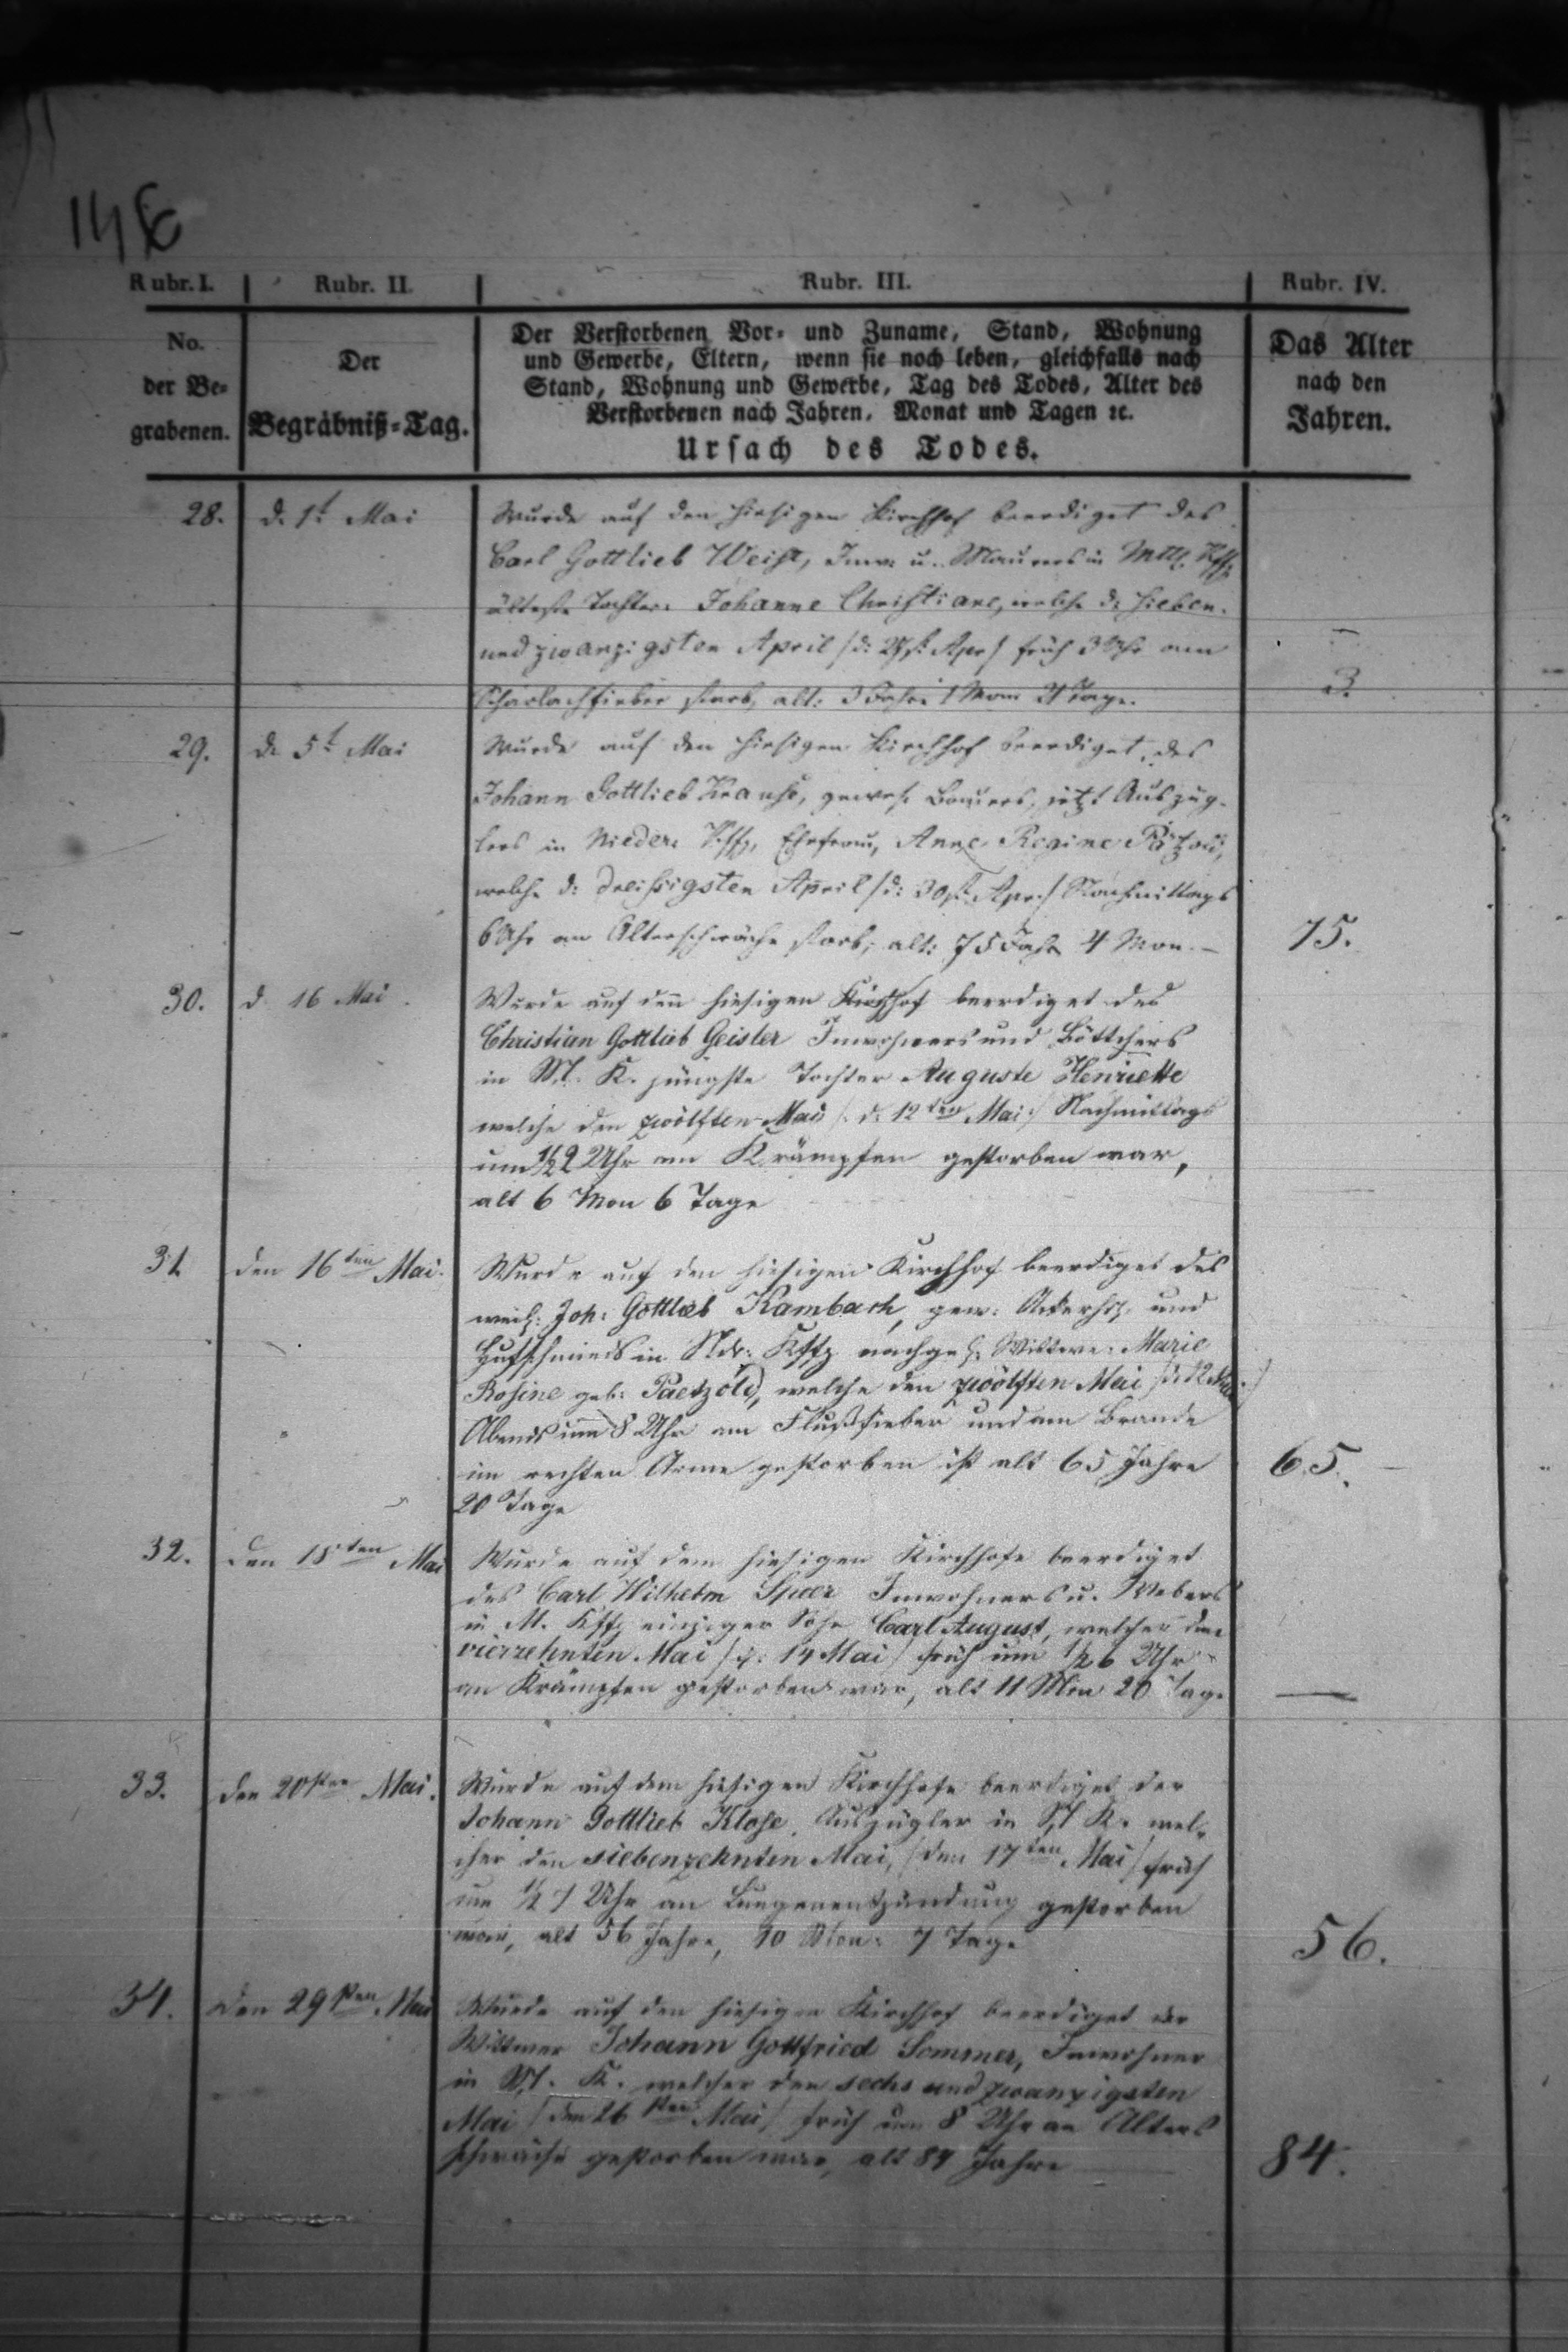 Rubr. I. Rubr. II. Rubr. III. Rubr. IV.
No. der Be-grabenen.
Der Begräbniß-Tag.
Der Verstorbenen Vor- und Zuname, Stand, Wohnung
und Gewerbe, Eltern, wenn sie noch leben, gleichfalls nach
Stand, Wohnung und Gewerbe, Tag des Todes, Alter des
Verstorbenen nach Jahren, Monat und Tagen ꝛc.
Ursach des Todes.
Das Alter nach den Jahren.
28. d. 1t Mai Wurde auf den hiesigen Kirchhof beerdiget des
Carl Gottlieb Weist, Inw: u. Maurers in Mttl. Kffg
älteste Tochter: Johanne Christiane, welche d: sieben-
und zwanzigsten April /d: 27st. Apr/ früh 3 Uhr am
Scharlachfieber starb, alt: 3 Jahre 1 Mon 21 Tage. 3.
29. d. 5t Mai Wurde auf den hiesigen Kirchhof beerdiget, des
Johann Gottlieb Krause, gewes. Bauers, jetzt Auszüg-
lers in Nieder: Kffg, Ehefrau, Anne Regine
welche d: dreißigsten April /d: 30st. Apr:/ Nachmittags
6 Uhr an Altersschwäche starb, alt: 75 Jahr 4 Mon. – 75.
30. d. 16 Mai. Wurde auf den hiesigen Kirchhof beerdiget des
Christian Gottlieb Geisler Inwohners und Böttchers
in M. K. jüngste Tochter Auguste Henriette
welche den zwölften Mai /: d. 12ten Mai:/ Nachmittags
um ½2 Uhr an Krämpfen gestorben war,
alt 6 Mon 6 Tage
31. den 16ten Mai. Wurde auf den hiesigen Kirchhof beerdiget des
weil: Joh: Gottlieb Kambach, gew: und
Hufschmieds in Ndr: Kffg nachgel: Wittwe: Marie
Rosine geb: Paetzold, welche den zwölften Mai /: d. 12 Mai:/
Abends um 8 Uhr am Flußfieber und am Brande
im rechten Arme gestorben ist alt 65 Jahre 65.
20 Tage
32. den 18ten Mai Wurde auf dem hiesigen Kirchhofe beerdiget
des Carl Wilhelm Speer Inwohners u. Webers
in M. Kffg einziger Sohn Carl August, welcher den
vierzehnten Mai /: d: 14 Mai/ früh um ½6 Uhr
an Krämpfen gestorben war, alt 11 Mon 20 Tage —
33. den 20sten Mai. Wurde auf dem hiesigen Kirchhofe beerdiget der
Johann Gottlieb Klose, Auszügler in M K. wel-
cher den siebenzehnten Mai, /den 17ten Mai/ früh
um ½7 Uhr an Lungenentzündung gestorben
war, alt 56 Jahre, 10 Mon: 7 Tage 56.
34. den 29sten Mai Wurde auf den hiesigen Kirchhof beerdiget der
Wittwer Johann Gottfried Sommer, Inwohner
in M. K. welcher den sechs und zwanzigsten
Mai /den 26sten Mai/ früh um 8 Uhr an Alters
schwäche gestorben war, alt 84 Jahre 84.